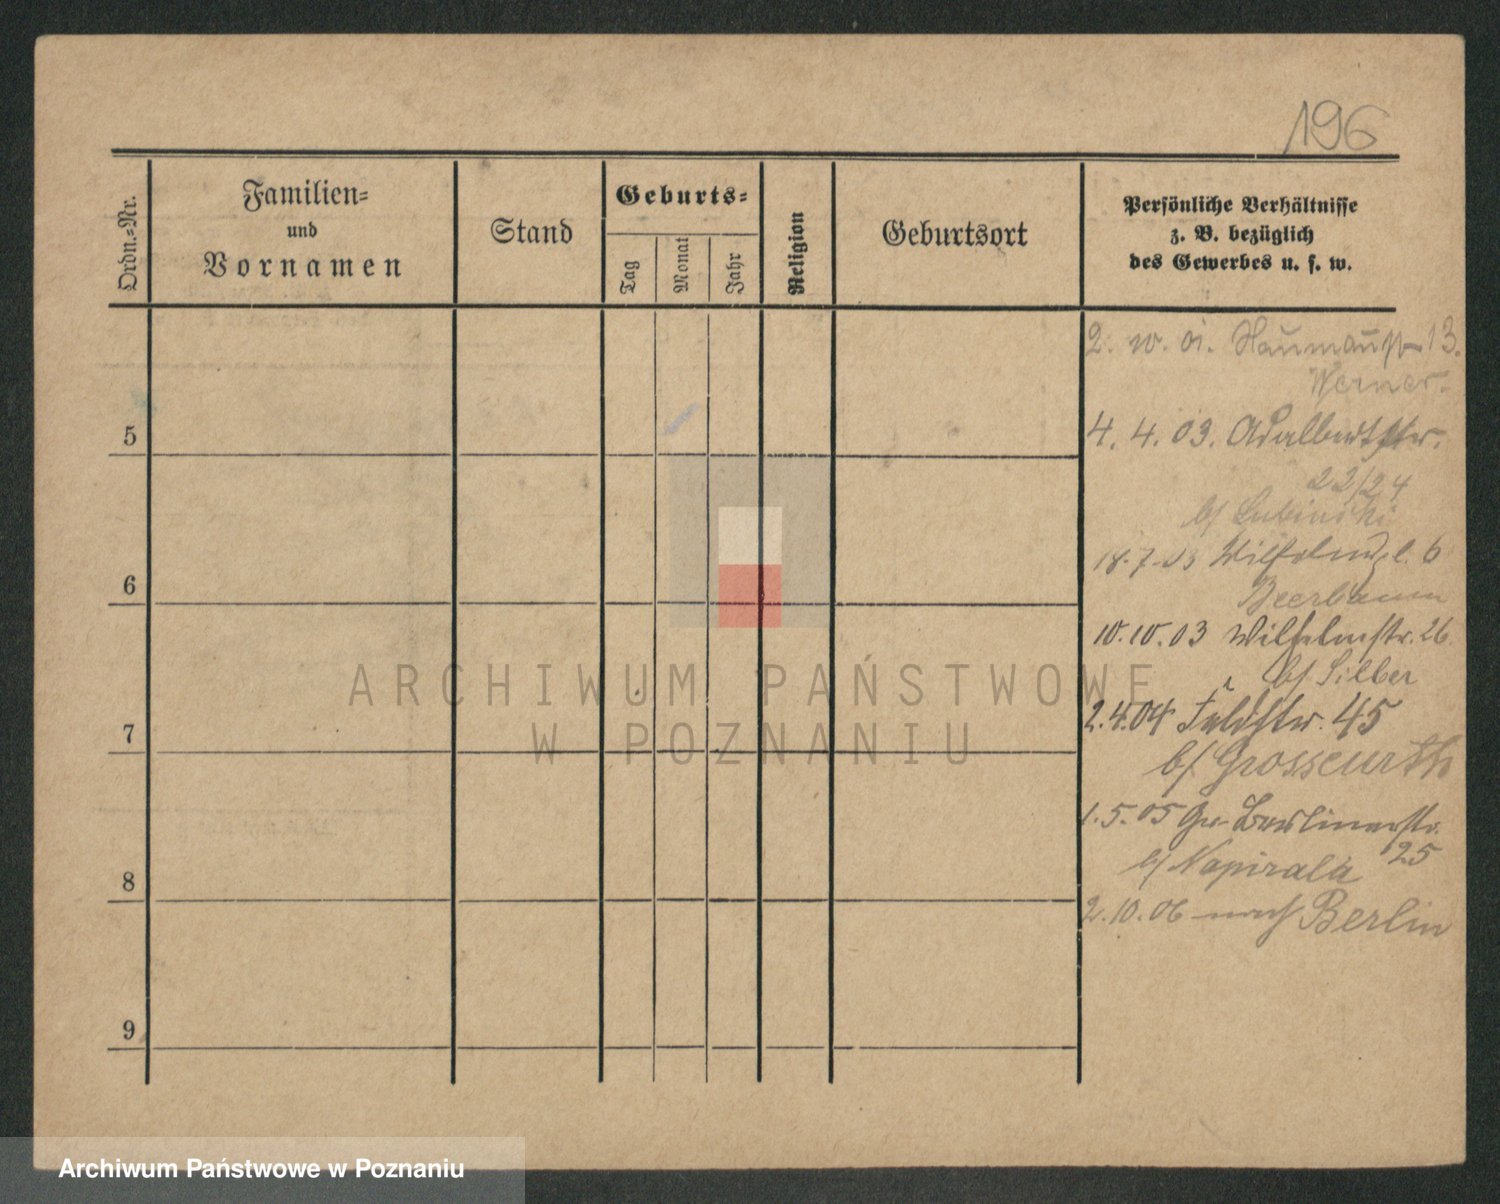 196
Ordn.-Nr.
Familien-
und
Vornamen
Stand
Geburts-
Tag
Monat
Jahr
Religion
Geburtsort
Persönliche Verhältnisse
z. B. bezüglich
des Gewerbes u. s. w.
2. 10. 01. Naumannstr 13.
Werner.
4. 4. 03. Adalbertstr.
23/24
b/ Lubinski
18.7.03 Wilhelmpl. 6
Beerbaum
10.10.03 Wilhelmstr. 26
b/ Silber
2.4.04 Feldstr. 45
b/ Grosseurth
1.5.05 Gr. Berlinerstr.
25
b/ Napirala
2.10.06 nach Berlin
5
6
7
8
9
ARCHIWUM PAŃSTWOWE
W POZNANIU
Archiwum Państwowe w Poznaniu